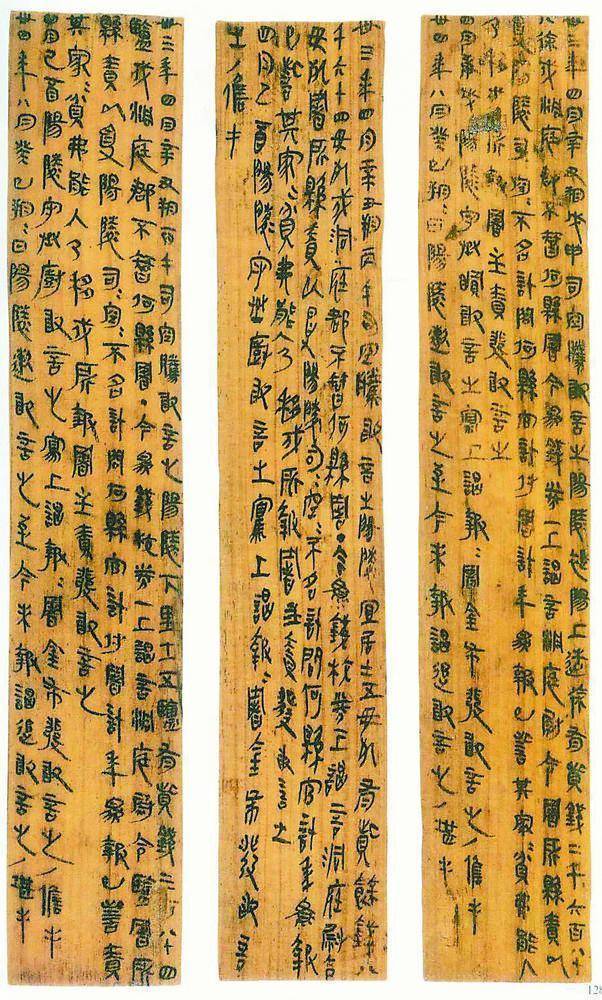 卅三年四月辛丑朔戊申司空騰敢言之陽陵褆陽上造徐有貲錢二千六百八十
八徐戍洞庭郡不智何縣署今為錢校券一上謁言洞庭尉令署所縣責以
受陽陵司空=不名計問何縣官計付署計年為報已訾其家=貧弗能入
乃移戍所報署主責發敢言之
四月庚戌陽陵守丞瞫敢言之寫上謁報=署金布發敢言之/儋手
卅四年八月癸巳朔=日陽陵遬敢言之至今未報謁追敢言之/堪手
卅三年四月辛丑朔丙午司空騰敢言之陽陵宜居士五毋死有貲餘錢八
千六十四毋死戍洞庭郡不智何縣署・今為錢校券一上謁言洞庭尉令
毋死署所縣責以受陽陵司=空=不名計問何縣官計年為報
已訾其家=貧弗能入乃移戍所報署主責發敢言之
四月己酉陽陵守丞廚敢言之寫上謁報=署金布發敢言
之/儋手
卅三年四月辛丑朔丙午司空騰敢言之陽陵下里士五鹽有貲錢三百八十四
鹽戍洞庭郡不智何縣署・今為錢校券一上謁言洞庭尉令鹽署所
縣責以受陽陵司=空=不名計問何縣官計付署計年為報已訾責
其家=貧弗能入乃移戍所報署主責發敢言之
四月己酉陽陵守丞廚敢言之寫上謁報=署金布發敢言之/儋手
卅四年八月癸巳朔=日陽陵遬敢言之至今未報謁追敢言之/堪手